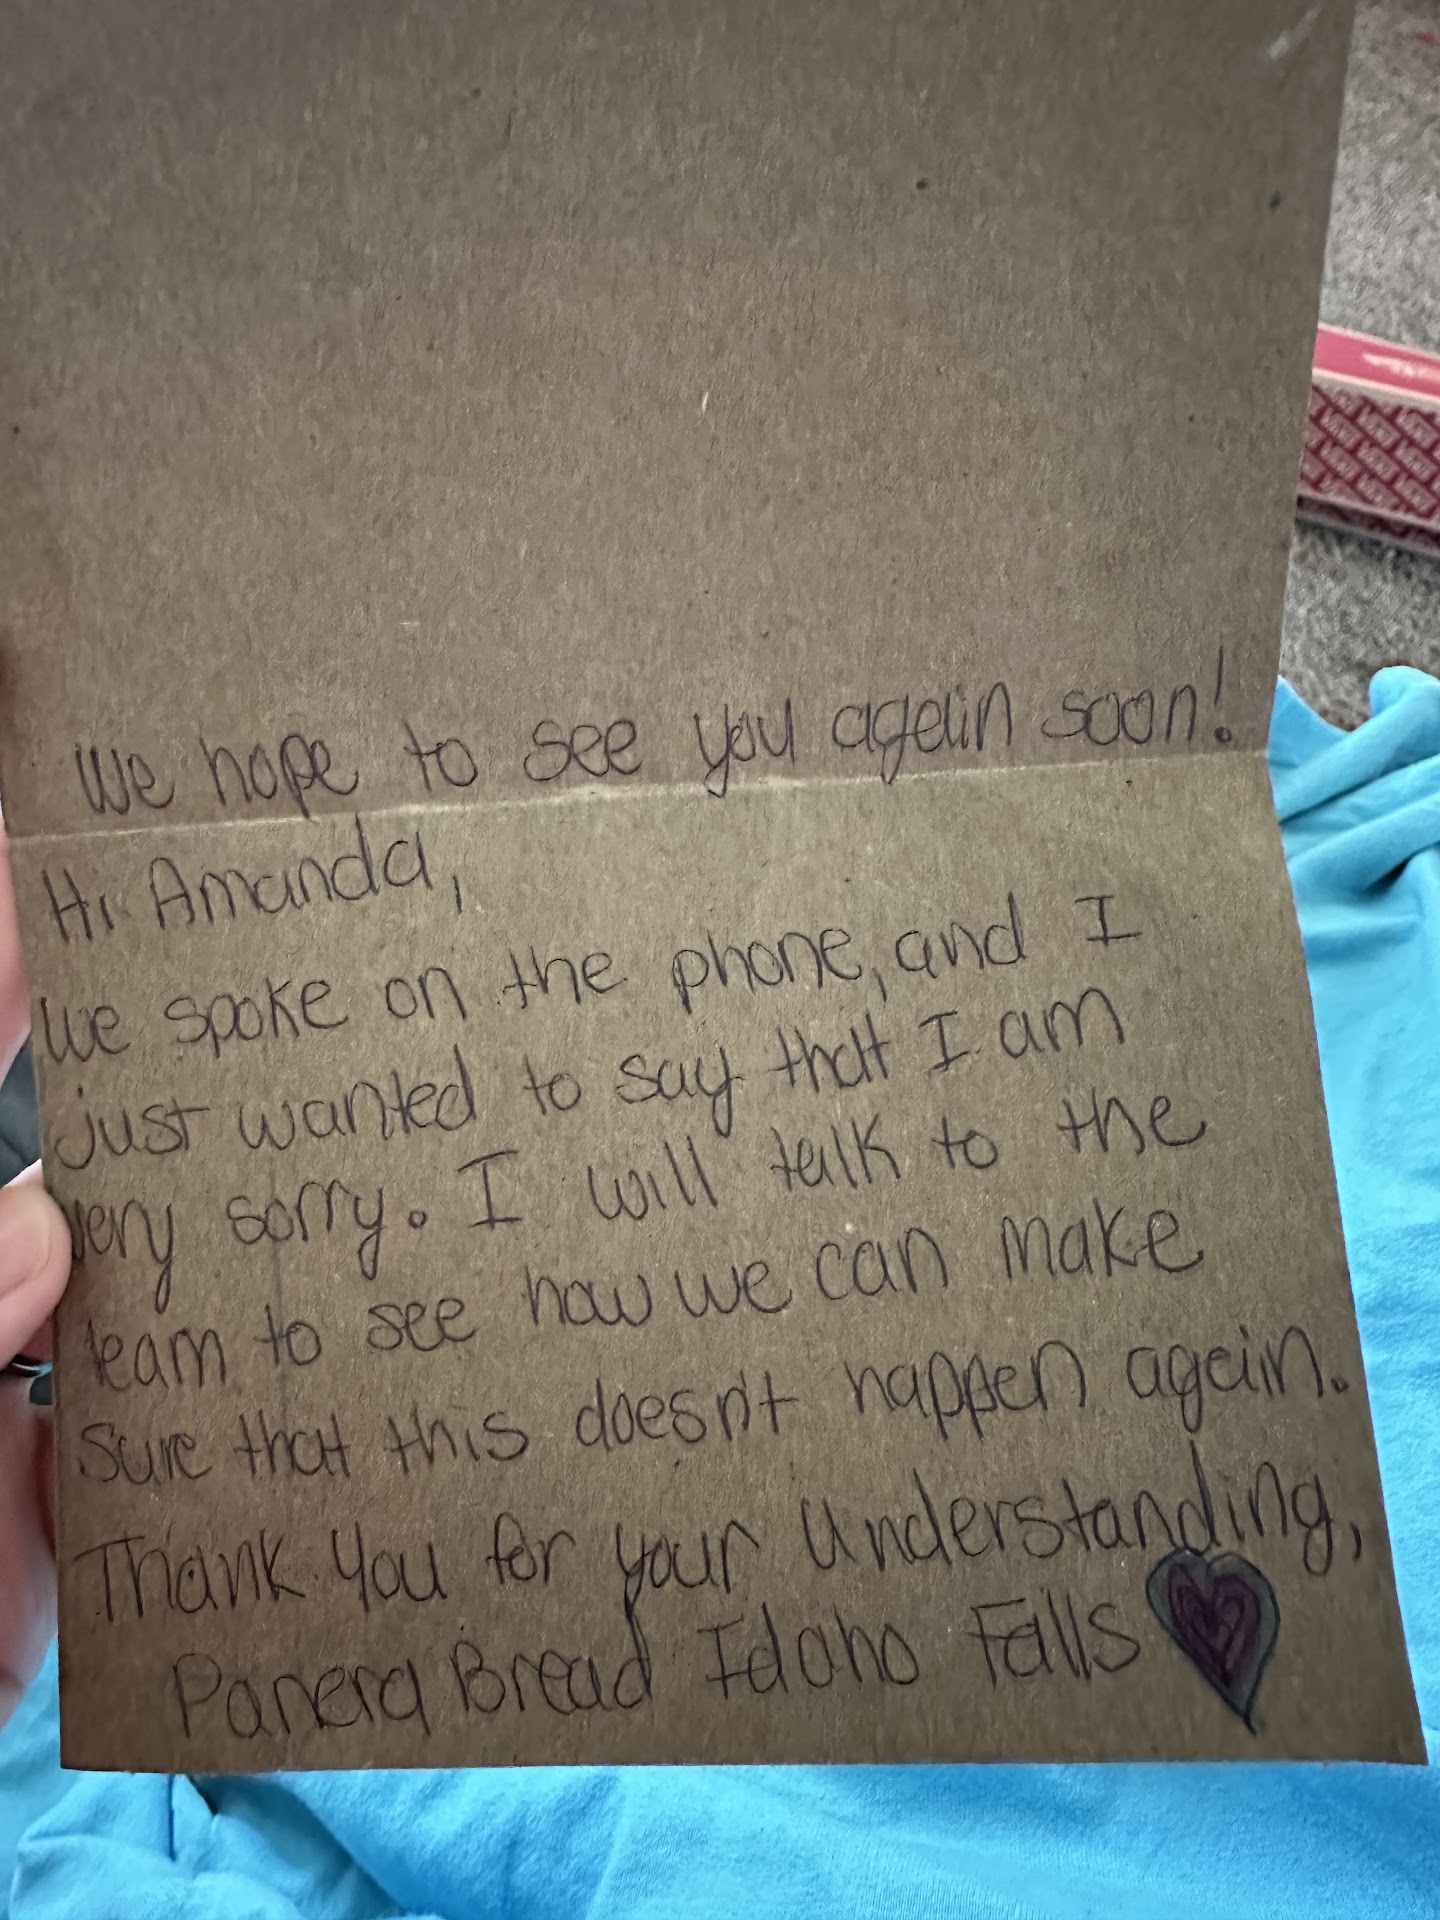 We hope to see you again soon!
Hi Amanda,
We spoke on the phone, and I
just wanted to say that I am
very sorry. I will talk to the
team to see how we can make
sure that this doesn't happen again.
Thank you for your understanding,
Panera Bread Idaho Falls